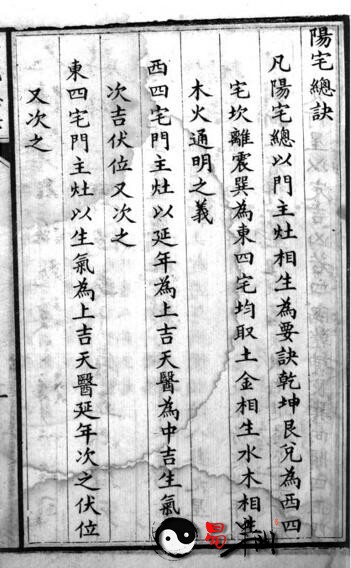 陽宅總訣
凡陽宅總以門主灶相生為要訣乾坤艮兌為西四
宅坎離震巽為東四宅均取土金相生水木相生
木火通明之義
西四宅門主灶以延年為上吉天醫為中吉生氣
次吉伏位又次之
東四宅門主灶以生氣為上吉天醫延年次之伏位
又次之